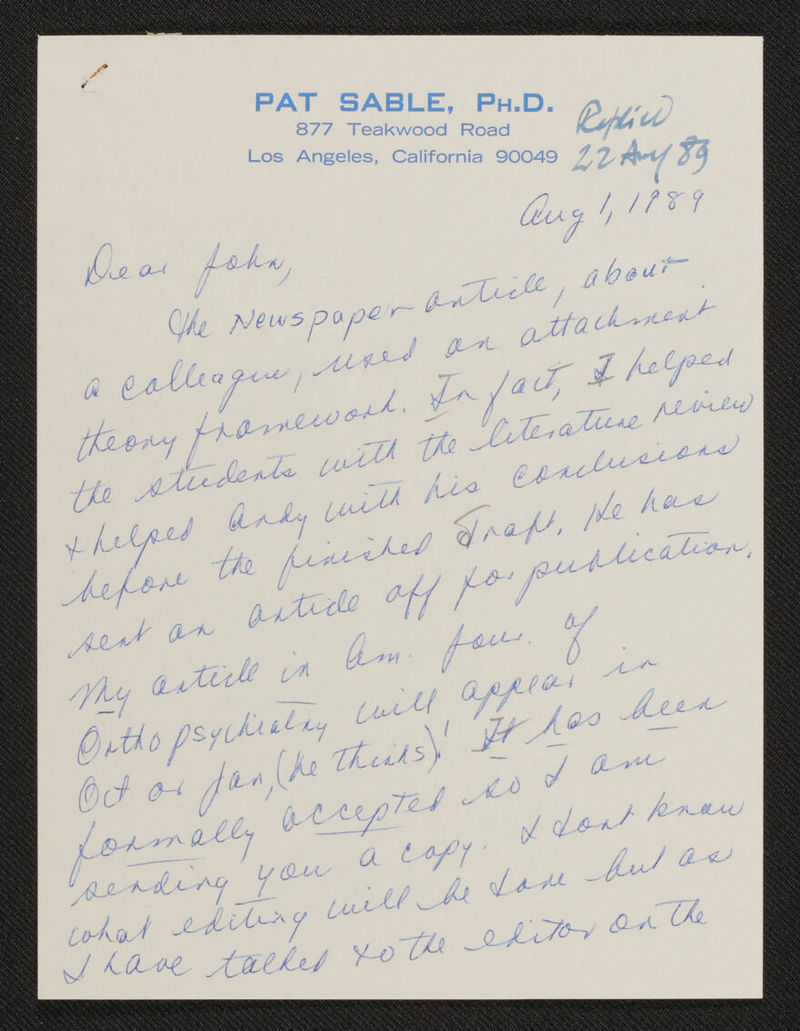 PAT SABLE, PH.D.
877 Teakwood Road
Los Angeles, California 90049
Replied
22 Aug 89
Aug 1, 1989
Dear John,
The Newspaper article, about
a colleague, used an attachment
theory framework. In fact, I helped
the students with the literature review
+ helped Andy with his conclusions
before the finished draft. He has
sent an article off for publication.
My article in Am. Jour. of
Orthopsychiatry will appear in
Oct or Jan, (he thinks)! It has been
formally accepted so I am
sending you a copy. I dont know
what editing will be done but as
I have talked to the editor on the